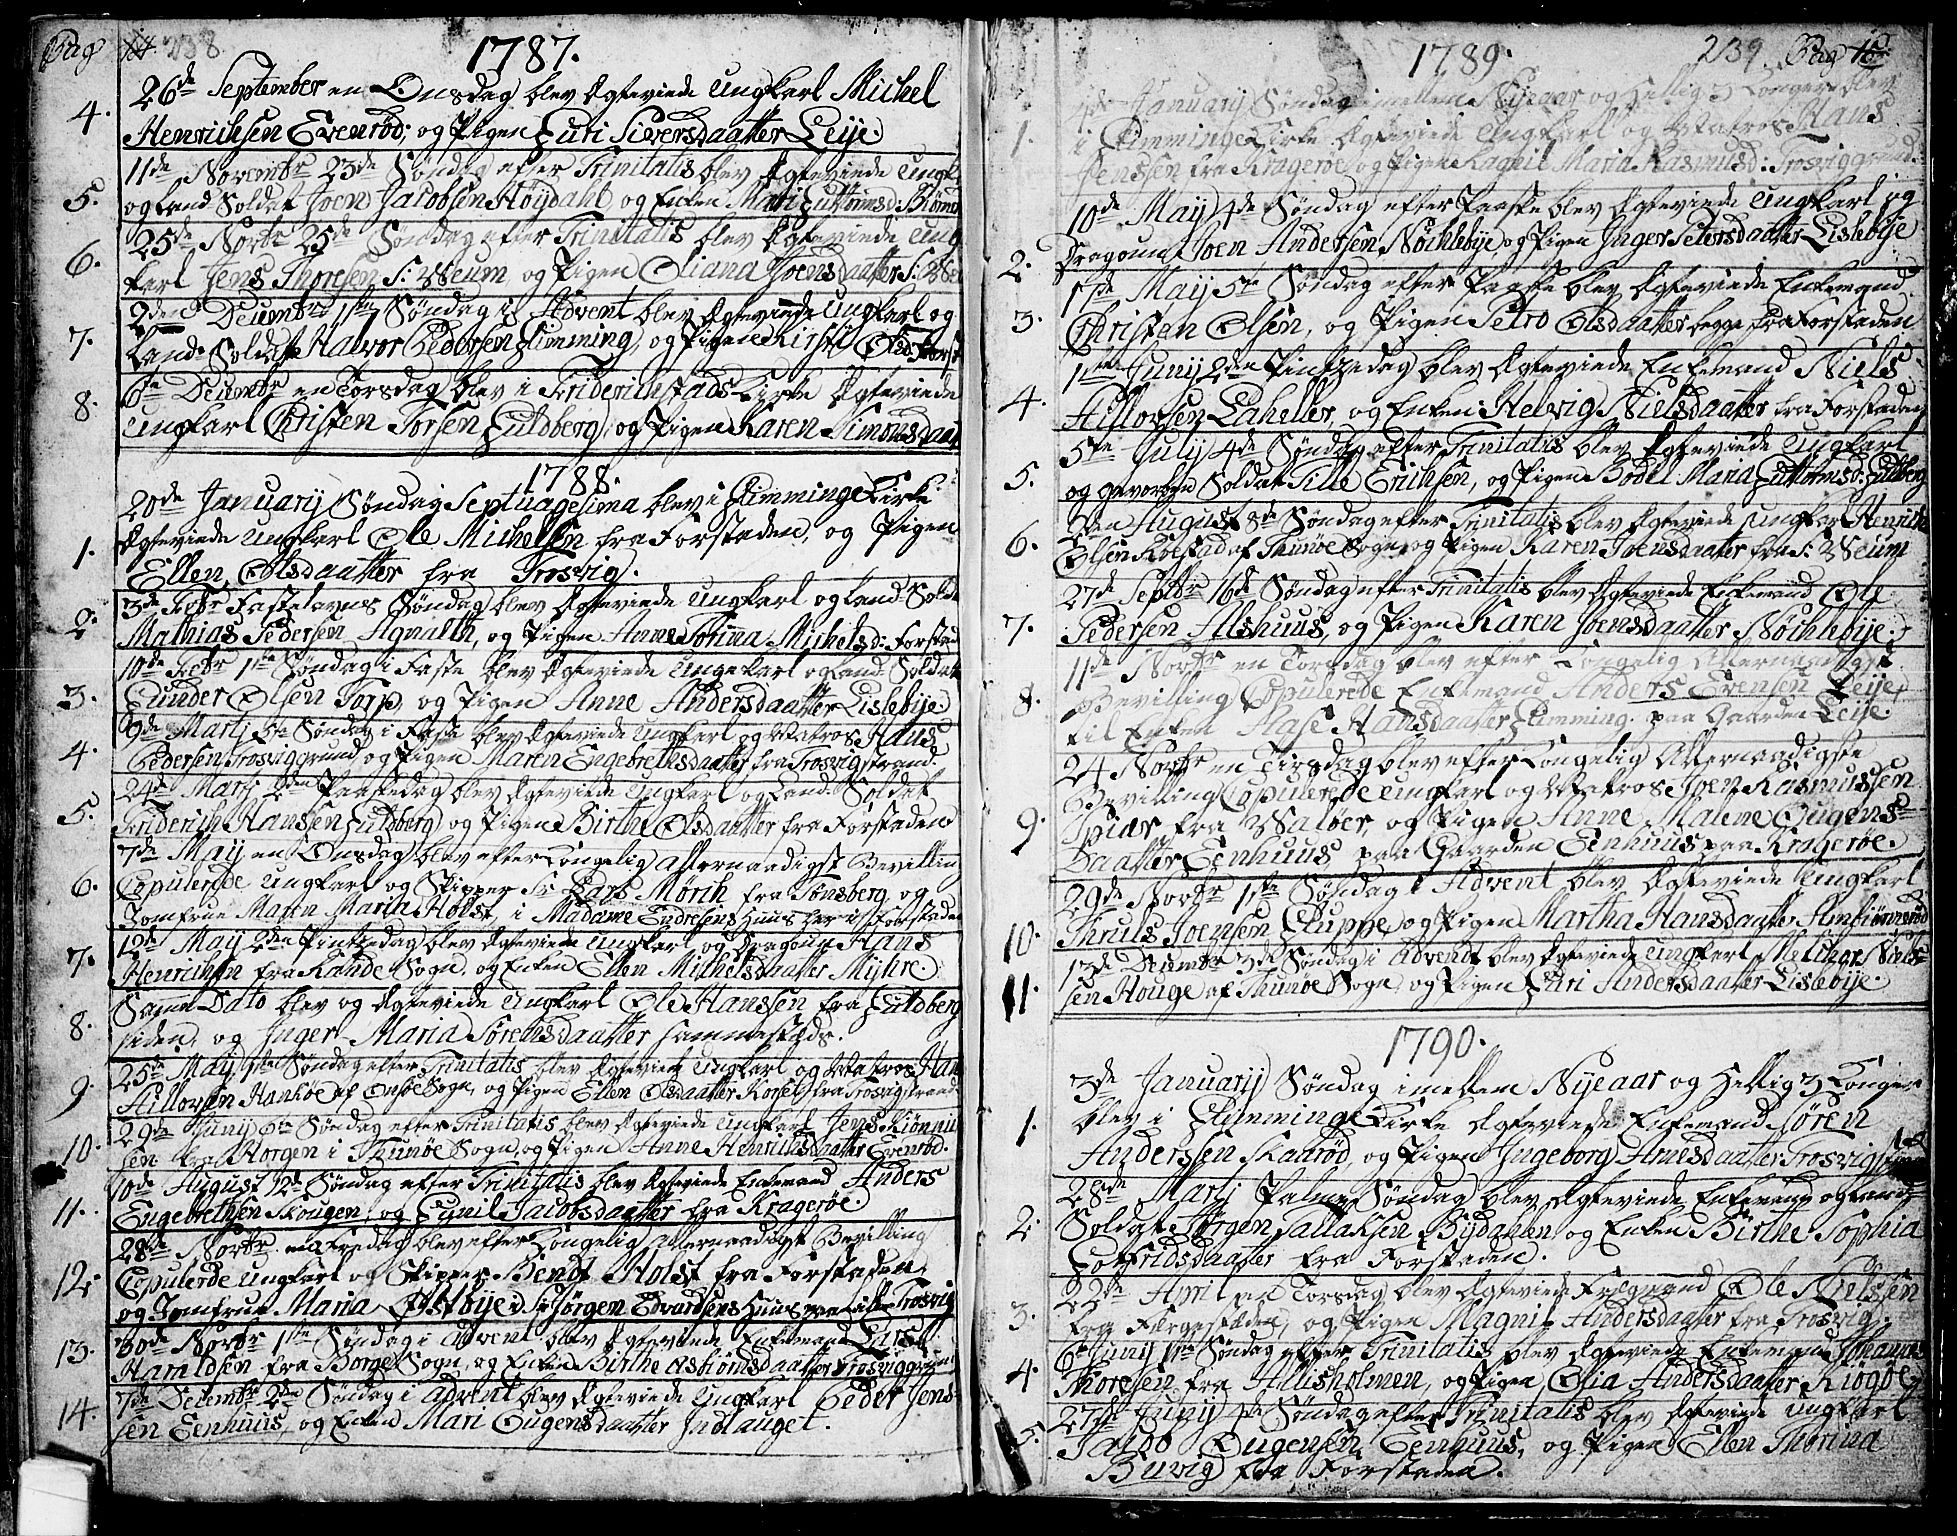 Pag 14 238
1787.
4. 26de September en Onsdag blev Ægteviede Ungkarl Michel
Henrichsen Evenrød, og Pigen Guri Siversdaatter Leije.
5. 11de Novembr 23de Søndag efter Trinitatis blev Ægteviede Ungk
og Land Soldat Joen Jacobsen Høydahl og Enken Mari Guttormsd
6. 25de Novbr 25de Søndag efter Trinitatis blev Ægteviede Ung
karl Jens Thoresen S: Weum, og Pigen Oliana Joensdaatter S: We
7. 2den Decembr 1ste Søndag i Advent blev Ægteviede Ungkarl og
Land Soldat Halvor Pedersen Glimming, og Pigen Kirsti Olsd
8. 6te Decembr en Torsdag blev i Friderichstads Kirke Ægteviede
Ungkarl Christen Torsen Guldberg, og Pigen Karen Simonsdaat
1788.
20de Januarij Søndag Septuagesima blev i Glimminge Kirke
1. Ægteviede Ungkarl Ole Michelsen fra Forstaden, og Pigen
Ellen Olsdaatter fra Trosvig.
2. 3de Febr Fastelavns Søndag blev Ægteviede Ungkarl og Land Solda
Mathias Pedersen Agnalth, og Pigen Anne Michelsd: Forstad
10de Febr 1ste Søndag i Faste blev Ægteviede Ungekarl og Land Soldat
3. Gunder Olsen Torp, og Pigen Anne Andersdaatter Lislebije.
4. 9de Martj 5te Søndag i Faste blev Ægteviede Ungkarl og Matros Hans
Pedersen Trosviggrund og Pigen Maren Engebrethsdaatter fra Trosvigstrand.
24de Martj 2den Paaskedag blev Ægteviede Ungkarl og Land Soldat
5. Friderich Hansen Guldberg, og Pigen Birthe Olsdaatter fra Forstaden
7de May en Onsdag blev efter Kongelig Allernaadigst Bevillin
6. Copulerede Ungkarl og Skipper Sr Lars Mørch fra Tønsberg og
Jomfrue Maren Maria Holst, i Madame Endresens Huus her i Forstaden
7. 12de May 2den Pintzedag blev Ægteviede Ungkarl og Dragoun Hans
Henrichsen fra Raade Sogn, og Enken Ellen Michelsdaatter Myhre.
Samme Dato blev og Ægteviede Ungkarl Ole Hanssen fra Guldberg
8. siden, og Inger Maria Sørensdaatter sammestæds.
9. 25de May 1ste Søndag efter Trinitatis blev Ægteviede Ungkarl og Matros Han
Hillovsen Hankøe af Onsøe Sogn, og Pigen Ellen Olsdaatter fra Trosvigstrand
29de Junij 6te Søndag efter Trinitatis blev Ægteviede Ungkarl Jens
10. sen fra Horgen i Thunøe Sogn, og Pigen Anne Henrichsdaatter Evenrød.
10de August 12de Søndag efter Trinitatis blev Ægteviede Enkemand Anders
11. Engebrethsen Skougen, og Gunil Jacobsdaatter fra Kragerøe.
28de Novbr en Fredag blev efter Kongelig Allernaadigst Bevilling
12. Copulerede Ungkarl og Skipper Bendt Holst fra Forstaden,
og Jomfrue Maria Østbye i Sr Jørgen Edvardsens Huus Trosvig
30de Novbr 1ste Søndag i Advent blev Ægteviede Enkemand Lars
13. Haraldsen fra Borge Sogn, og Enken Birthe Asbiönsdaatter Trosviggrund
7de Decembr 2de Søndag i Advent blev Ægteviede Ungkarl Peder Jens
14. sen Eenhuus, og Enken Mari Ougensdaatter Indlauget.
1789. 239. Pag 15
4de Januarij Søndag imellem Nyeaar og Hellig 3 Konger blev
1. i Glimminge Kirke Ægteviede Ungkarl og Matros Hans
Jenssen fra Kragerøe og Pigen Ragnil Maria Rasmusd: Trosviggrund.
10de May 4de Søndag efter Paaske blev Ægteviede Ungkarl og
2. Dragoun Joen Andersen Nøchlebye, og Pigen Inger Petersdaatter Lislebije
17de May 5te Søndag efter Paaske blev Ægteviede Enkemand
3. Christen Olsen, og Pigen Petro Olsdaatter begge fra Forstaden
1ste Junij 2den Pintzedag blev Ægteviede Enkemand Niels
4. Hillovsen Laheller, og Enken Helvig Nielsdaatter fra Forstaden
5te July 4de Søndag efter Trinitatis blev Ægteviede Ungkarl
5. og gevorben Soldat Tille Erichsen, og Pigen Bodel Maria Guttormsd: Guldberg
2den August 8de Søndag efter Trinitatis blev Ægteviede Ungkarl Henrich
6. Olsen Rolstad af Thunøe Sogn, og Pigen Karen Joensdaatter fra S: Weum
27de Septbr 16de Søndag efter Trinitatis blev Ægteviede Enkemand Ole
7. Pedersen Alshuus, og Pigen Karen Joensdaatter Nøchlebije.
11de Novbr en Torsdag blev efter Kongelig Allernaadigst
8. Bevilling Copulerede Enkemand Anders Evensen Leije,
til Enken Aase Hansdaatter Glimming paa Gaarden Leije.
24 Novbr en Tirsdag blev efter Kongelig Allernaadigste
Bevilling Copulerede Ungkarl og Matros Joen Rasmussen
9. fra Walöer, og Pigen Anne Malene Ougens-
daatter Eenhuus paa Gaarden Eenhuus paa Kragerøe.
29de Novbr 1ste Søndag i Advent blev Ægteviede Ungkarl
10. Thruls Joensen Gluppe, og Pigen Martha Hansdaatter Ambiönnerød
13de Decembr 3de Søndag i Advent blev Ægteviede Ungkarl Melchor Niels-
11. sen Houge af Thunøe Sogn, og Pigen Guri Andersdaatter Lislebije.
1790.
3de Januarij Søndag imellem Nyeaar og Hellig 3 Konger
1. blev i Glimminge Kirke Ægteviede Enkemand Søren
Anderssen Skaarød, og Pigen Ingeborg Arnesdaatter Trosvig
28de Martj Palme Søndag blev Ægteviede Enkemand og Land
2. Soldat Jørgen Tallaksen Bydahlen og Enken Birthe Sophia
Gotfridsdaatter fra Forstaden.
22de April en Torsdag blev Ægteviede Færgmand Ole Nielsen
3. fra Færgestæden, og Pigen Magnil Andersdaatter fra Trosvig.
6te Junij 1ste Søndag efter Trinitatis blev Ægteviede Enkemand Johannes
4. Thoresen fra Allisholmen, og Pigen Olia Andersdaatter Kiøgøe
27de Junij 4de Søndag efter Trinitatis blev Ægteviede Ungkarl
5. Jacob Ougensen Eenhuus, og Pigen Ellen Thorina
Buvig fra Forstaden.